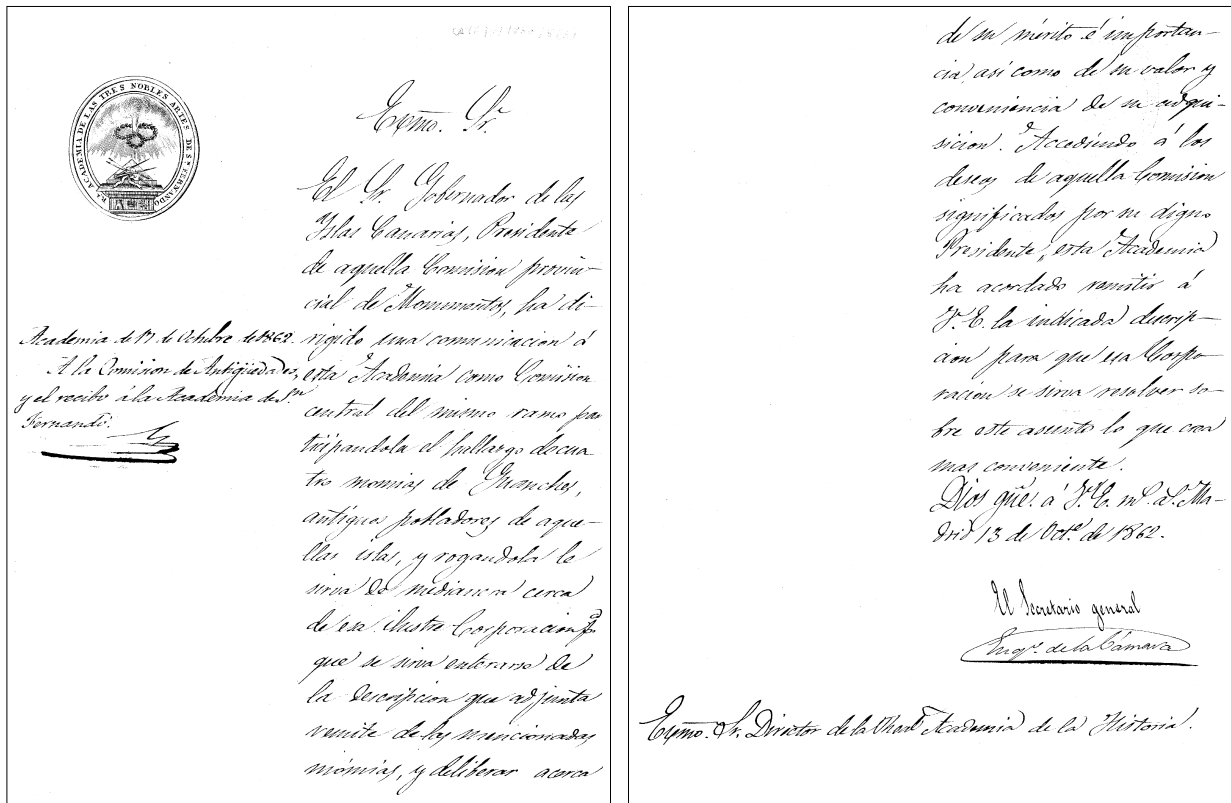 Rl. ACADEMIA DE LAS TRES NOBLES ARTES DE Sn. FERNANDO
Exmo. Sr.
El Sr. Gobernador de las
Islas Canarias, Presidente
de aquella Comision provin-
cial de Monumentos, ha di-
rigido una comunicacion á
esta Academia como Comision
central del mismo ramo par
ticipandola el hallazgo de cua
tro momias de Guanches,
antiguos pobladores de aque-
llas islas, y rogandola le
sirva de medianera cerca
de esa ilustre Corporacion pa.
que se sirva enterarse de
la descripcion que adjunta
remite de las mencionadas
mómias, y deliberar acerca
Academia de 17 de Octubre de 1862.
A la Comision de Antigüedades,
y el recibo á la Academia de Sn.
Fernando.
de su mérito é importan-
cia, asi como de su valor y
conveniencia de su adqui-
sicion. Accediendo á los
deseos de aquella Comision
significados por su digno
Presidente, esta Academia
ha acordado remitir á
V.E. la indicada descrip-
cion para que esa Corpo-
racion se sirva resolver so-
bre este asunto lo que crea
mas conveniente.
Dios gũe. á V.E. ms. as. Ma-
drid 13 de Octe. de 1862.
El Secretario general
Eugo. de la Cámara
Exmo. Sr. Director de la Real Academia de la Historia.